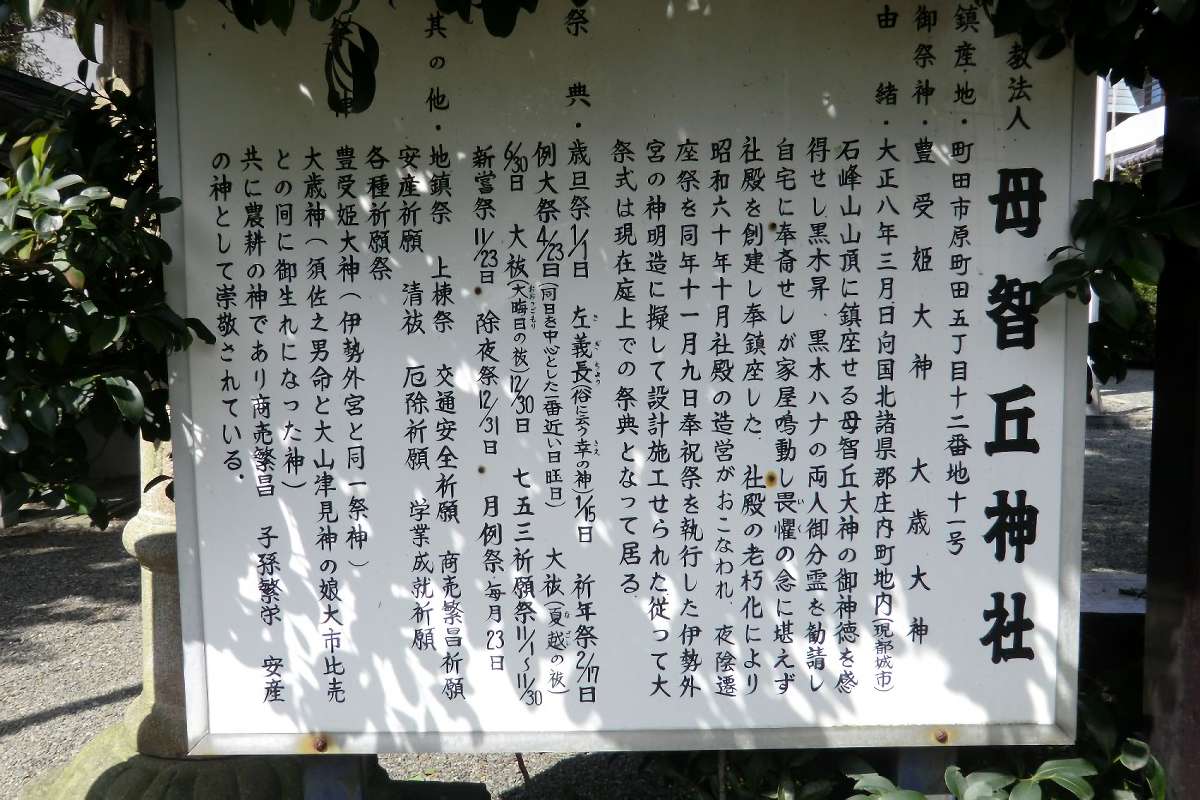 教法人 母智丘神社
鎮座地・町田市原町田五丁目十二番地十一号
御祭神・豊受姫大神 大歳大神
由緒・大正八年三月日向国北諸県郡庄内町地内(現都城市)
石峰山山頂に鎮座せる母智丘大神の御神徳を感
得せし黒木昇 黒木ハナの両人御分霊を勧請し
自宅に奉斎せしが家屋鳴動し畏懼の念に堪えず
社殿を創建し奉鎮座した 社殿の老朽化により
昭和六十年十月社殿の造営がおこなわれ 夜陰遷
座祭を同年十一月九日奉祝祭を執行した伊勢外
宮の神明造に擬して設計施工せられた従って大
祭式は現在庭上での祭典となって居る
祭典・歳旦祭1/1日 左義長(俗に云う幸の神)1/15日 祈年祭2/17日
例大祭4/23日(何日を中心とした一番近い日旺日) 大祓(夏越の祓)
6/30日 大祓(大晦日の祓)12/30日 七五三祈願祭11/1〜11/30
新嘗祭11/23日 除夜祭12/31日 月例祭毎月23日
其の他・地鎮祭 上棟祭 交通安全祈願 商売繁昌祈願
安産祈願 清祓 厄除祈願 学業成就祈願
各種祈願祭
神 豊受姫大神(伊勢外宮と同一祭神)
大歳神(須佐之男命と大山津見神の娘大市比売
との間に御生れになった神)
共に農耕の神であり商売繁昌 子孫繁栄 安産
の神として崇敬されている・